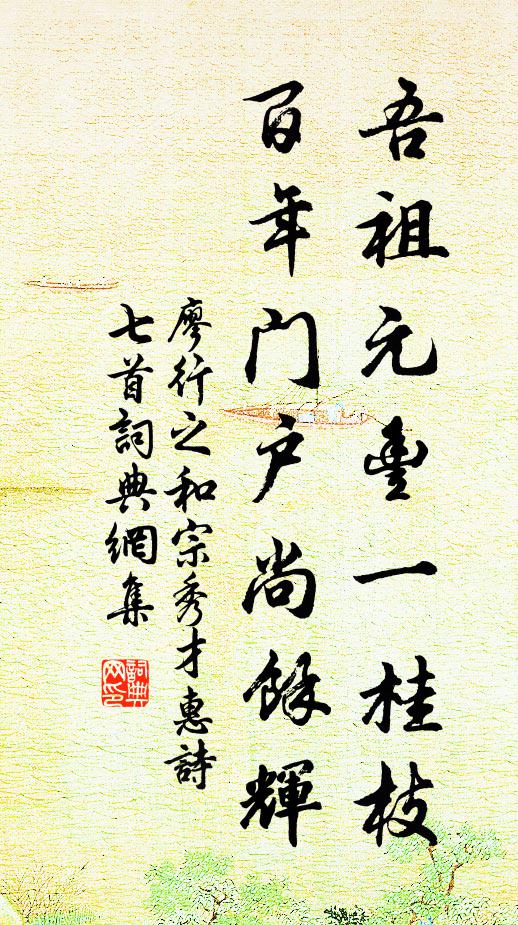 吾祖元豐一桂枝
百年門户尚餘輝
廖行之和宗秀才惠詩
七首詞典網集
詞典网印